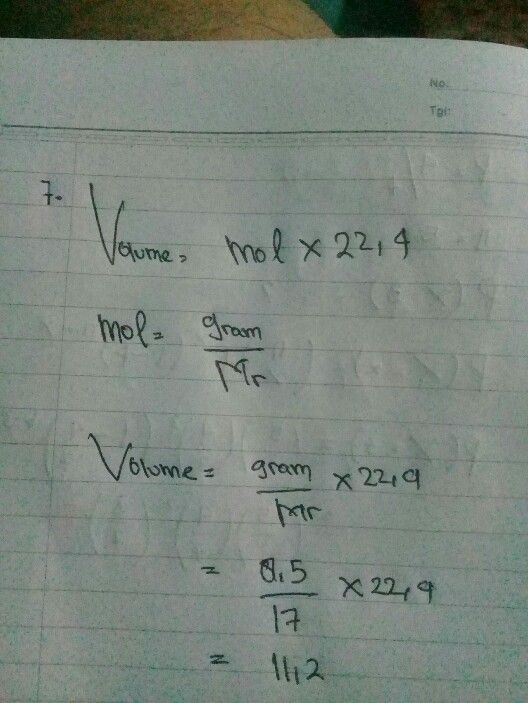 No.
Tgl:
7.
Volume = mol × 22,4
mol = gram
Mr
Volume = gram × 22,4
Mr
= 8,5 × 22,4
17
= 11,2